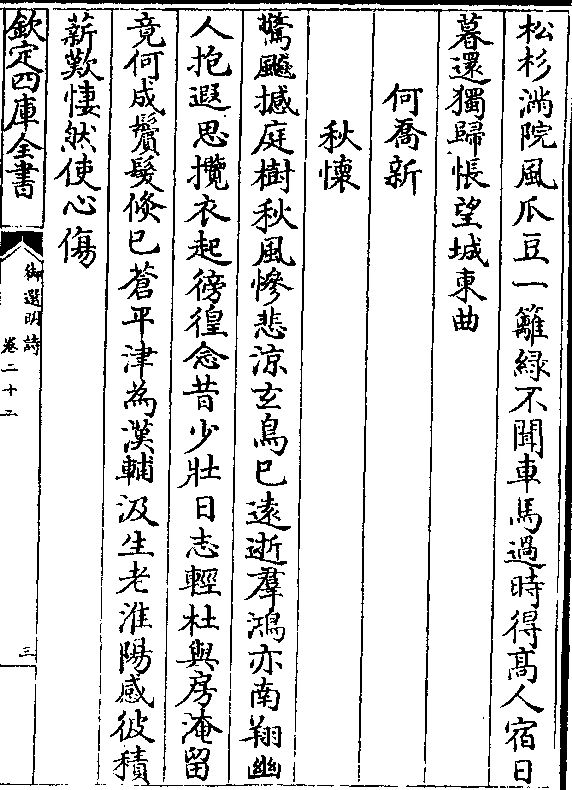 松杉满院風瓜豆一籬緑不聞車馬過時得髙人宿日
暮還獨歸悵望城東曲
何喬新
秋懷
驚飈撼庭樹秋風慘悲涼玄鳥已遠逝羣鴻亦南翔幽
人抱遐思攬衣起徬徨念昔少壯日志輕杜與房淹留
竟何成鬢髮倐已蒼平津為漢輔汲生老淮陽感彼積
薪歎悽然使心傷
欽定四庫全書
御選明詩
卷二十二
三